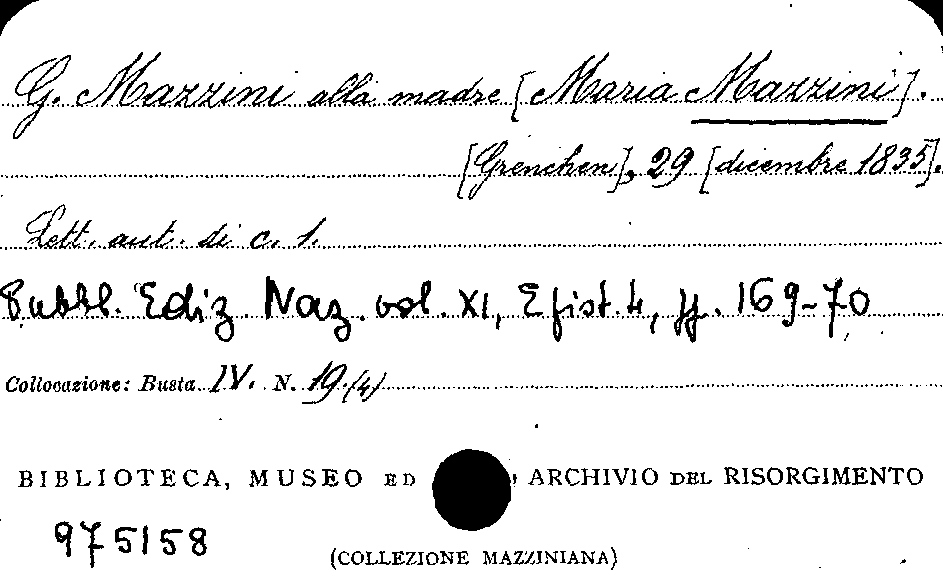 G. Mazzini alla madre [Maria Mazzini].
[Grenchen], 29 [dicembre 1835].
Lett. aut. di c. 1.
Pubbl. Ediz. Naz. vol. XI, Epist. 4, pp. 169-70
Collocazione: Busta IV. N. 19.(4)
BIBLIOTECA, MUSEO ED ARCHIVIO DEL RISORGIMENTO
975158
(COLLEZIONE MAZZINIANA)